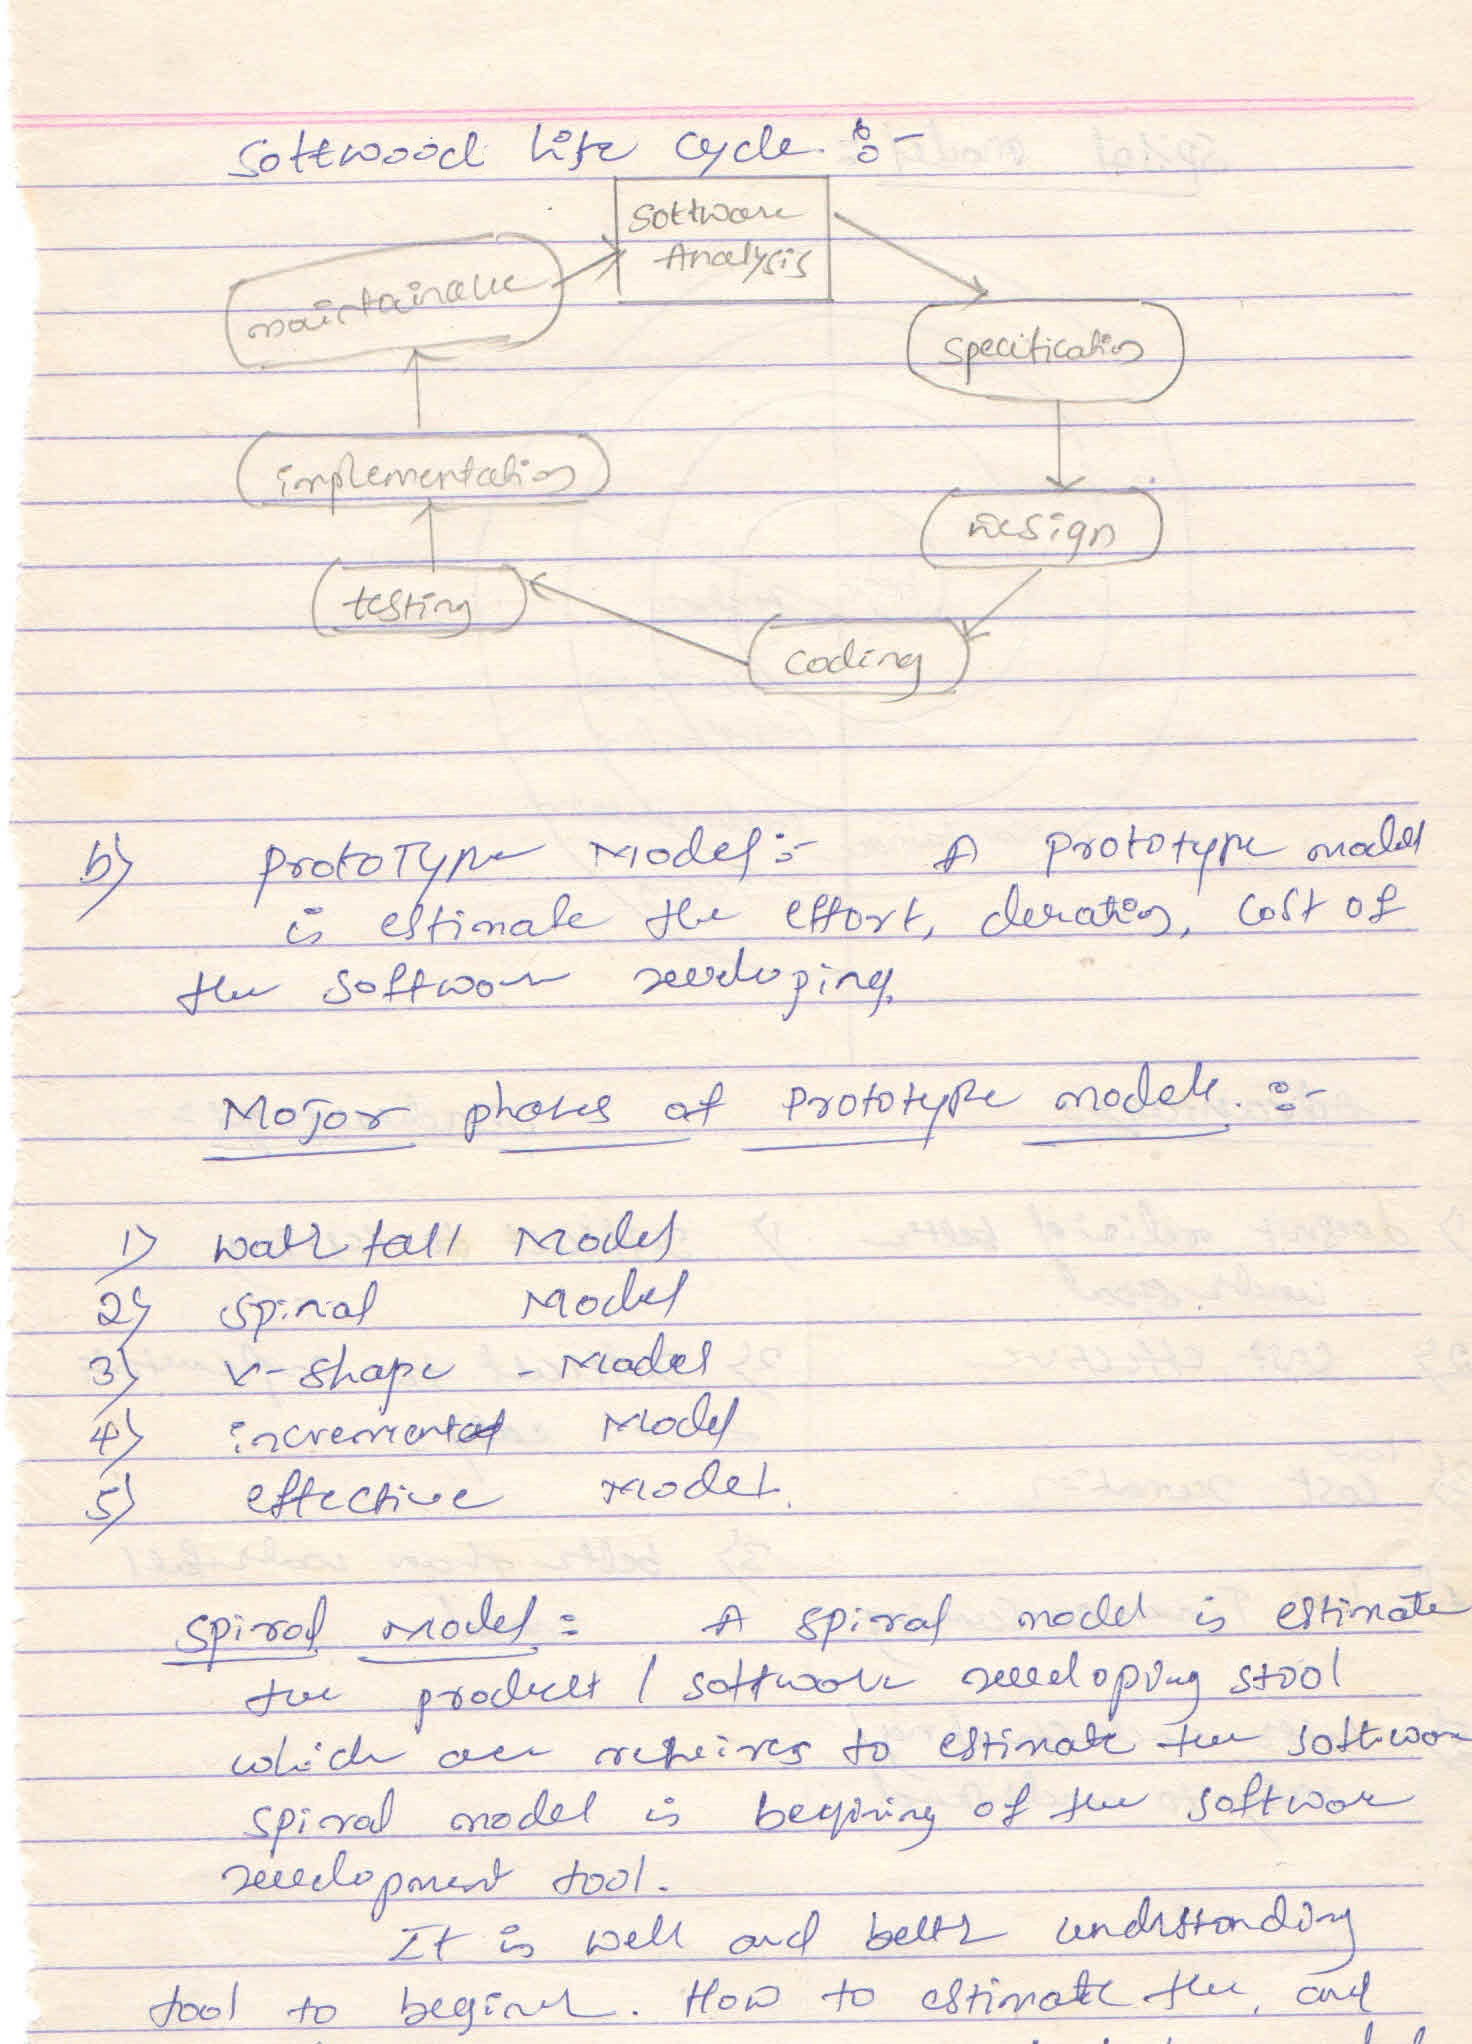 Softwood Life Cycle :-
Software
Analysis
maintainance
specification
implementation
Design
testing
coding
b) ProtoType Model :- A Prototype model
is estimate the effort, duration, cost of
the software developing.
Major phases of Prototype model. :-
1) water fall Model
2) spiral Model
3) V-shape - Model
4) incremental Model
5) effective Model.
Spiral Model : A spiral model is estimate
the product / software developing stool
which are to estimate the software
spiral model is of the software
development tool.
It is well and better understanding
tool to . How to estimate the, and